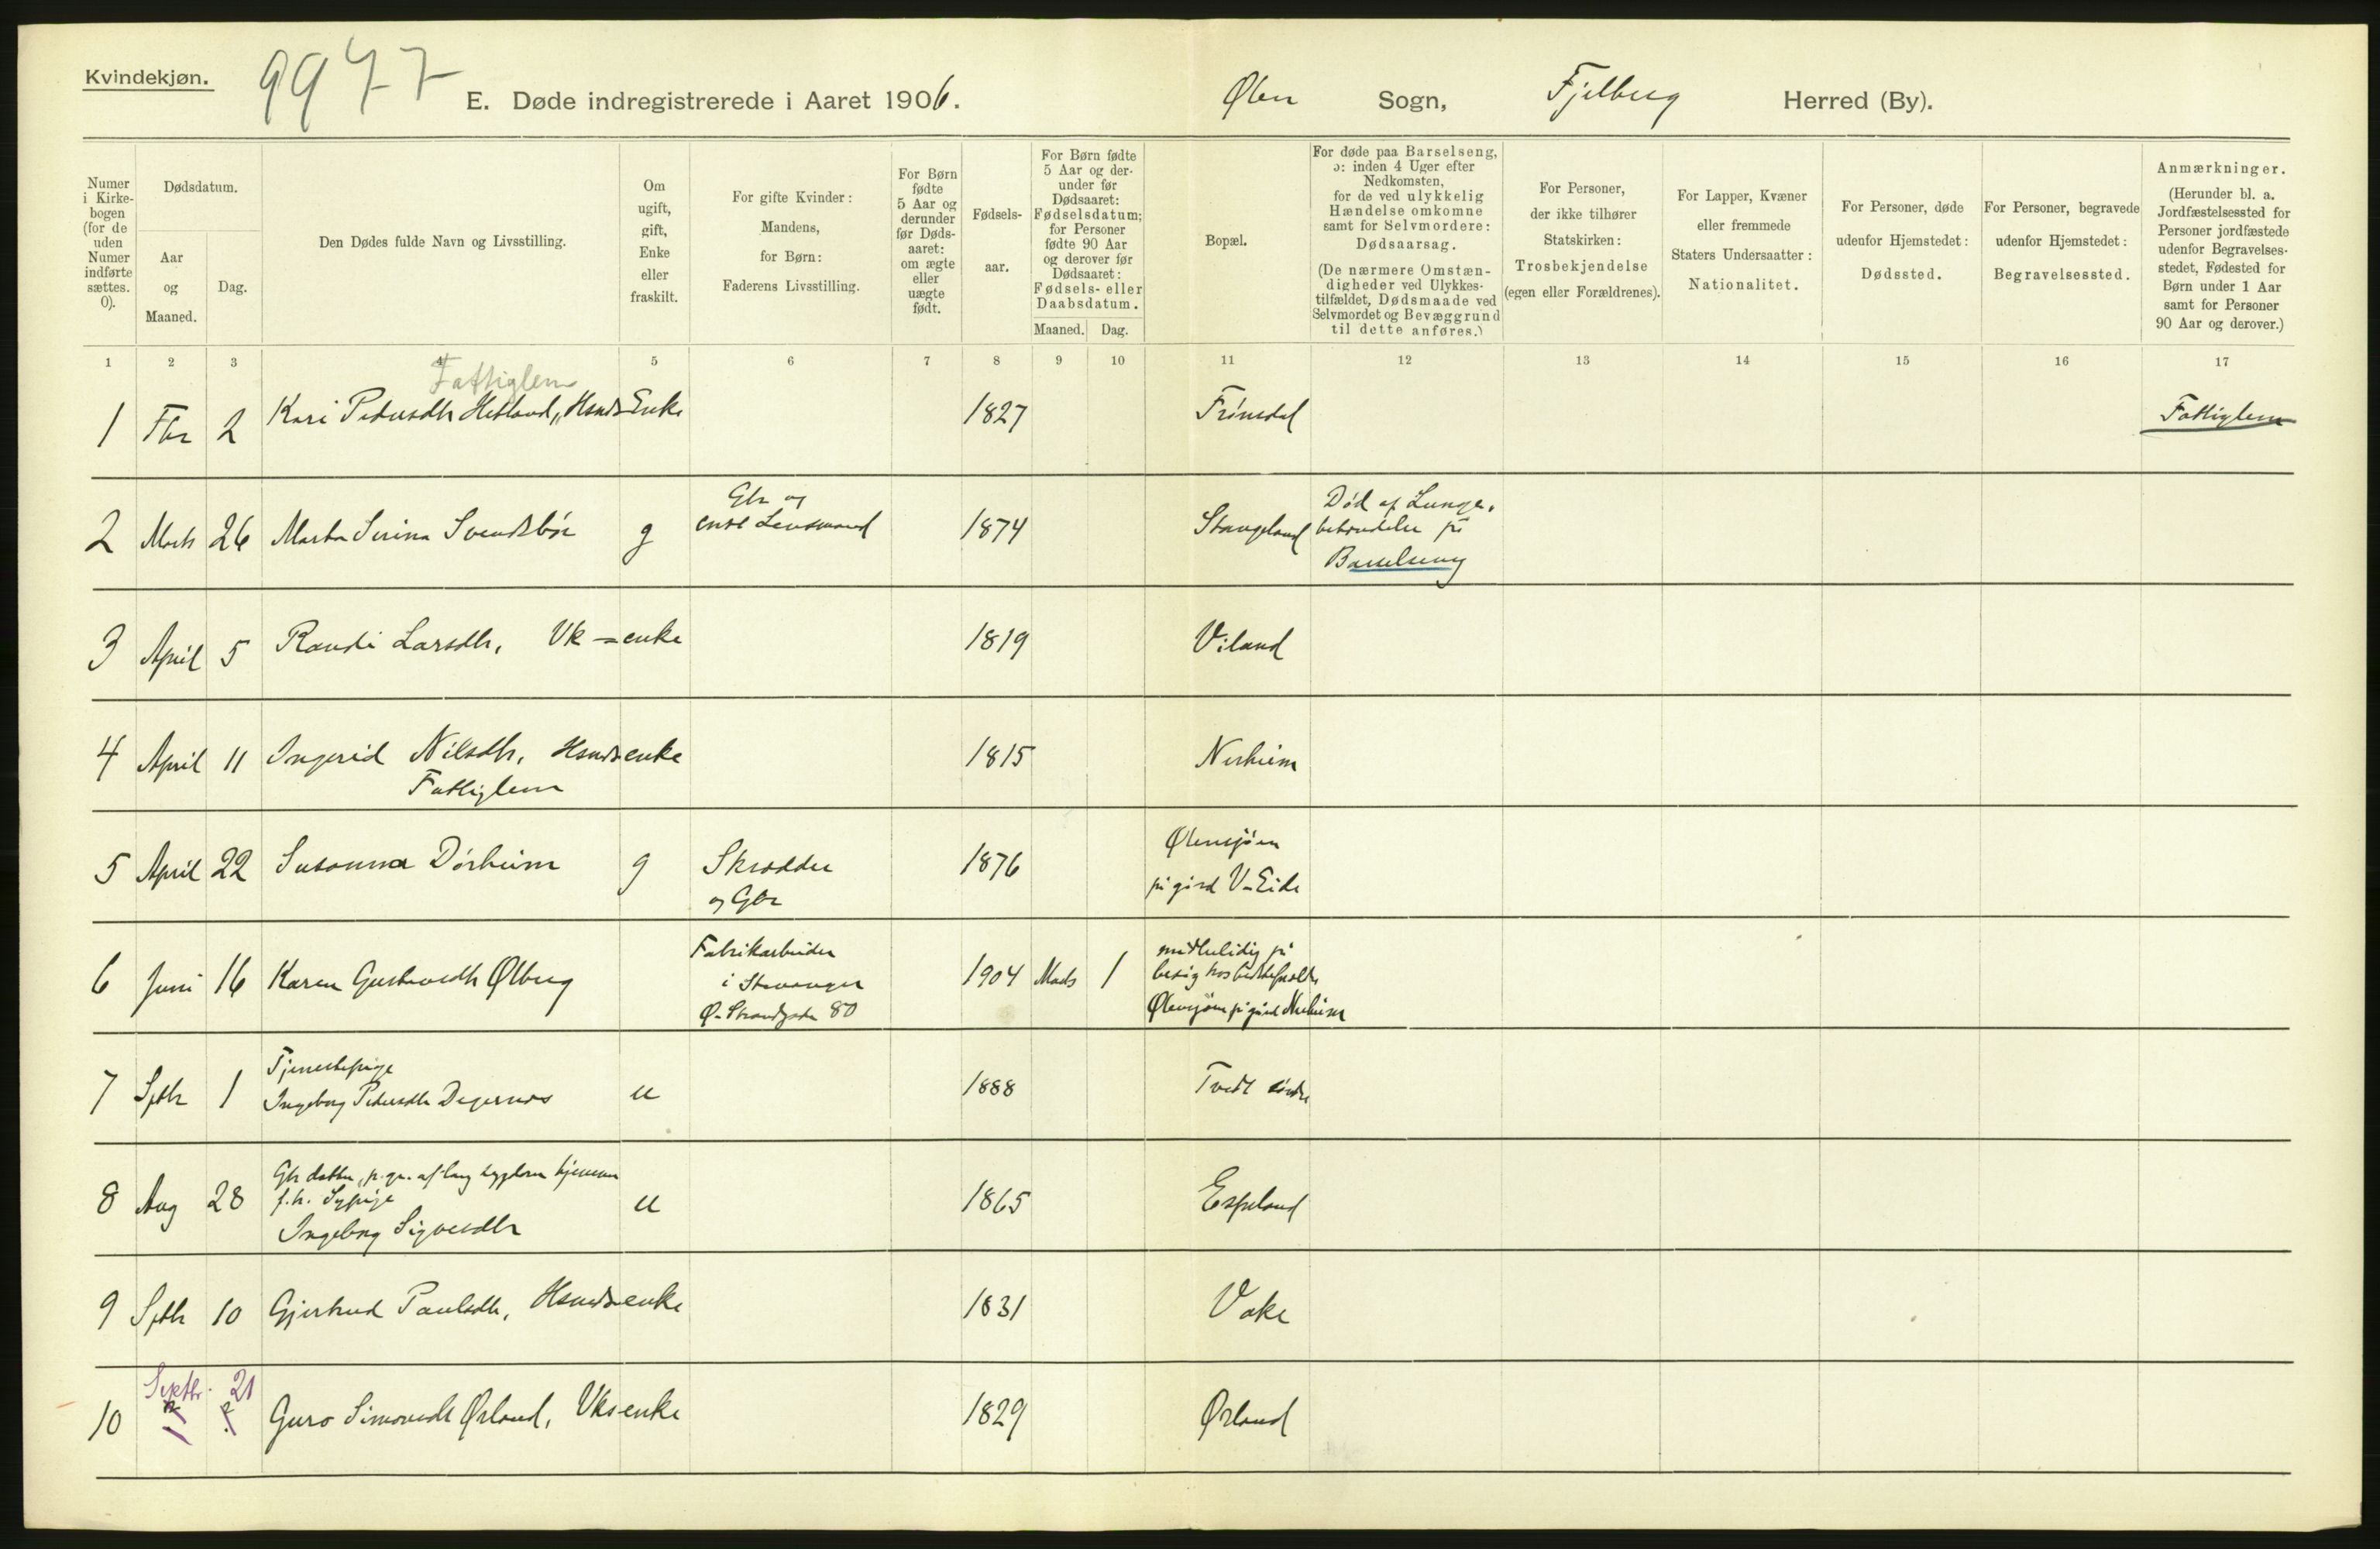 Kvindekjøn.
9977
E. Døde indregistrerede i Aaret 1906.
Ølen Sogn, Fjelberg Herred (By).
Numer
i Kirke-
bogen
(for de
uden
Numer
indførte
sættes.
0).
Dødsdatum.
Aar
og
Maaned.
Dag.
Den Dødes fulde Navn og Livsstilling.
Om
ugift,
gift,
Enke
eller
fraskilt.
For gifte Kvinder:
Mandens,
for Børn:
Faderens Livsstilling.
For Børn
fødte
5 Aar og
derunder
før Døds-
aaret:
om ægte
eller
uægte
født.
Fødsels-
aar.
For Børn fødte
5 Aar og der-
under før
Dødsaaret:
Fødselsdatum;
for Personer
fødte 90 Aar
og derover før
Dødsaaret:
Fødsels- eller
Daabsdatum.
Maaned. Dag.
Bopæl.
For døde paa Barselseng,
ɔ: inden 4 Uger efter
Nedkomsten,
for de ved ulykkelig
Hændelse omkomne
samt for Selvmordere:
Dødsaarsag.
(De nærmere Omstæn-
digheder ved Ulykkes-
tilfældet, Dødsmaade ved
Selvmordet og Bevæggrund
til dette anføres.)
For Personer,
der ikke tilhører
Statskirken:
Trosbekjendelse
(egen eller Forældrenes).
For Lapper, Kvæner
eller fremmede
Staters Undersaatter:
Nationalitet.
For Personer, døde
udenfor Hjemstedet:
Dødssted.
For Personer, begravede
udenfor Hjemstedet:
Begravelsessted.
Anmærkninger.
(Herunder bl. a.
Jordfæstelsessted for
Personer jordfæstede
udenfor Begravelses-
stedet, Fødested for
Børn under 1 Aar
samt for Personer
90 Aar og derover.)
1 2 3 4 5 6 7 8 9 10 11 12 13 14 15 16 17
Fattiglem
1 Fbr 2 Kari Pedersdtr Hetland, Hsmds Enke 1827 Frönsdal Fattiglem
2 Marts 26 Marta Serina Svendsbøe g Gbr og
Lensmand 1874 Stangeland Död af Lunge-
betændelse på
Barselseng
3 April 5 Randi Larsdtr, Vk-enke 1819 Viland
4 April 11 Ingerid Nilsdtr, Hsmds enke 1815 Nerheim
Fattiglem
5 April 22 Susanna Dörheim g Skrædder
og Gbr 1876 Ølensjöen
på gård V-Eide
6 Juni 16 Karen Gustavsdtr Ølberg Fabrikarbeider
i Stavanger
Ø. Strandgade 80 1904 Marts 1 midlertidig på
besøg hos bedsteforældre
Ølensjöen på gård Nerheim
7 Septb 1 Tjenestepige
Ingeborg Pedersdtr Degernes u 1888 Tvedt söndre
8 Aug 28 Gbr datter, p.gr. af lang sygdom hjemme
f.h. Sypige
Ingeborg Sigvesdtr u 1865 Espeland
9 Septb 10 Gjertrud Paulsdtr, Hsmds enke 1831 Vake
Septbr. 21
10 Guro Simonsdtr Ørland, Vks enke 1829 Ørland